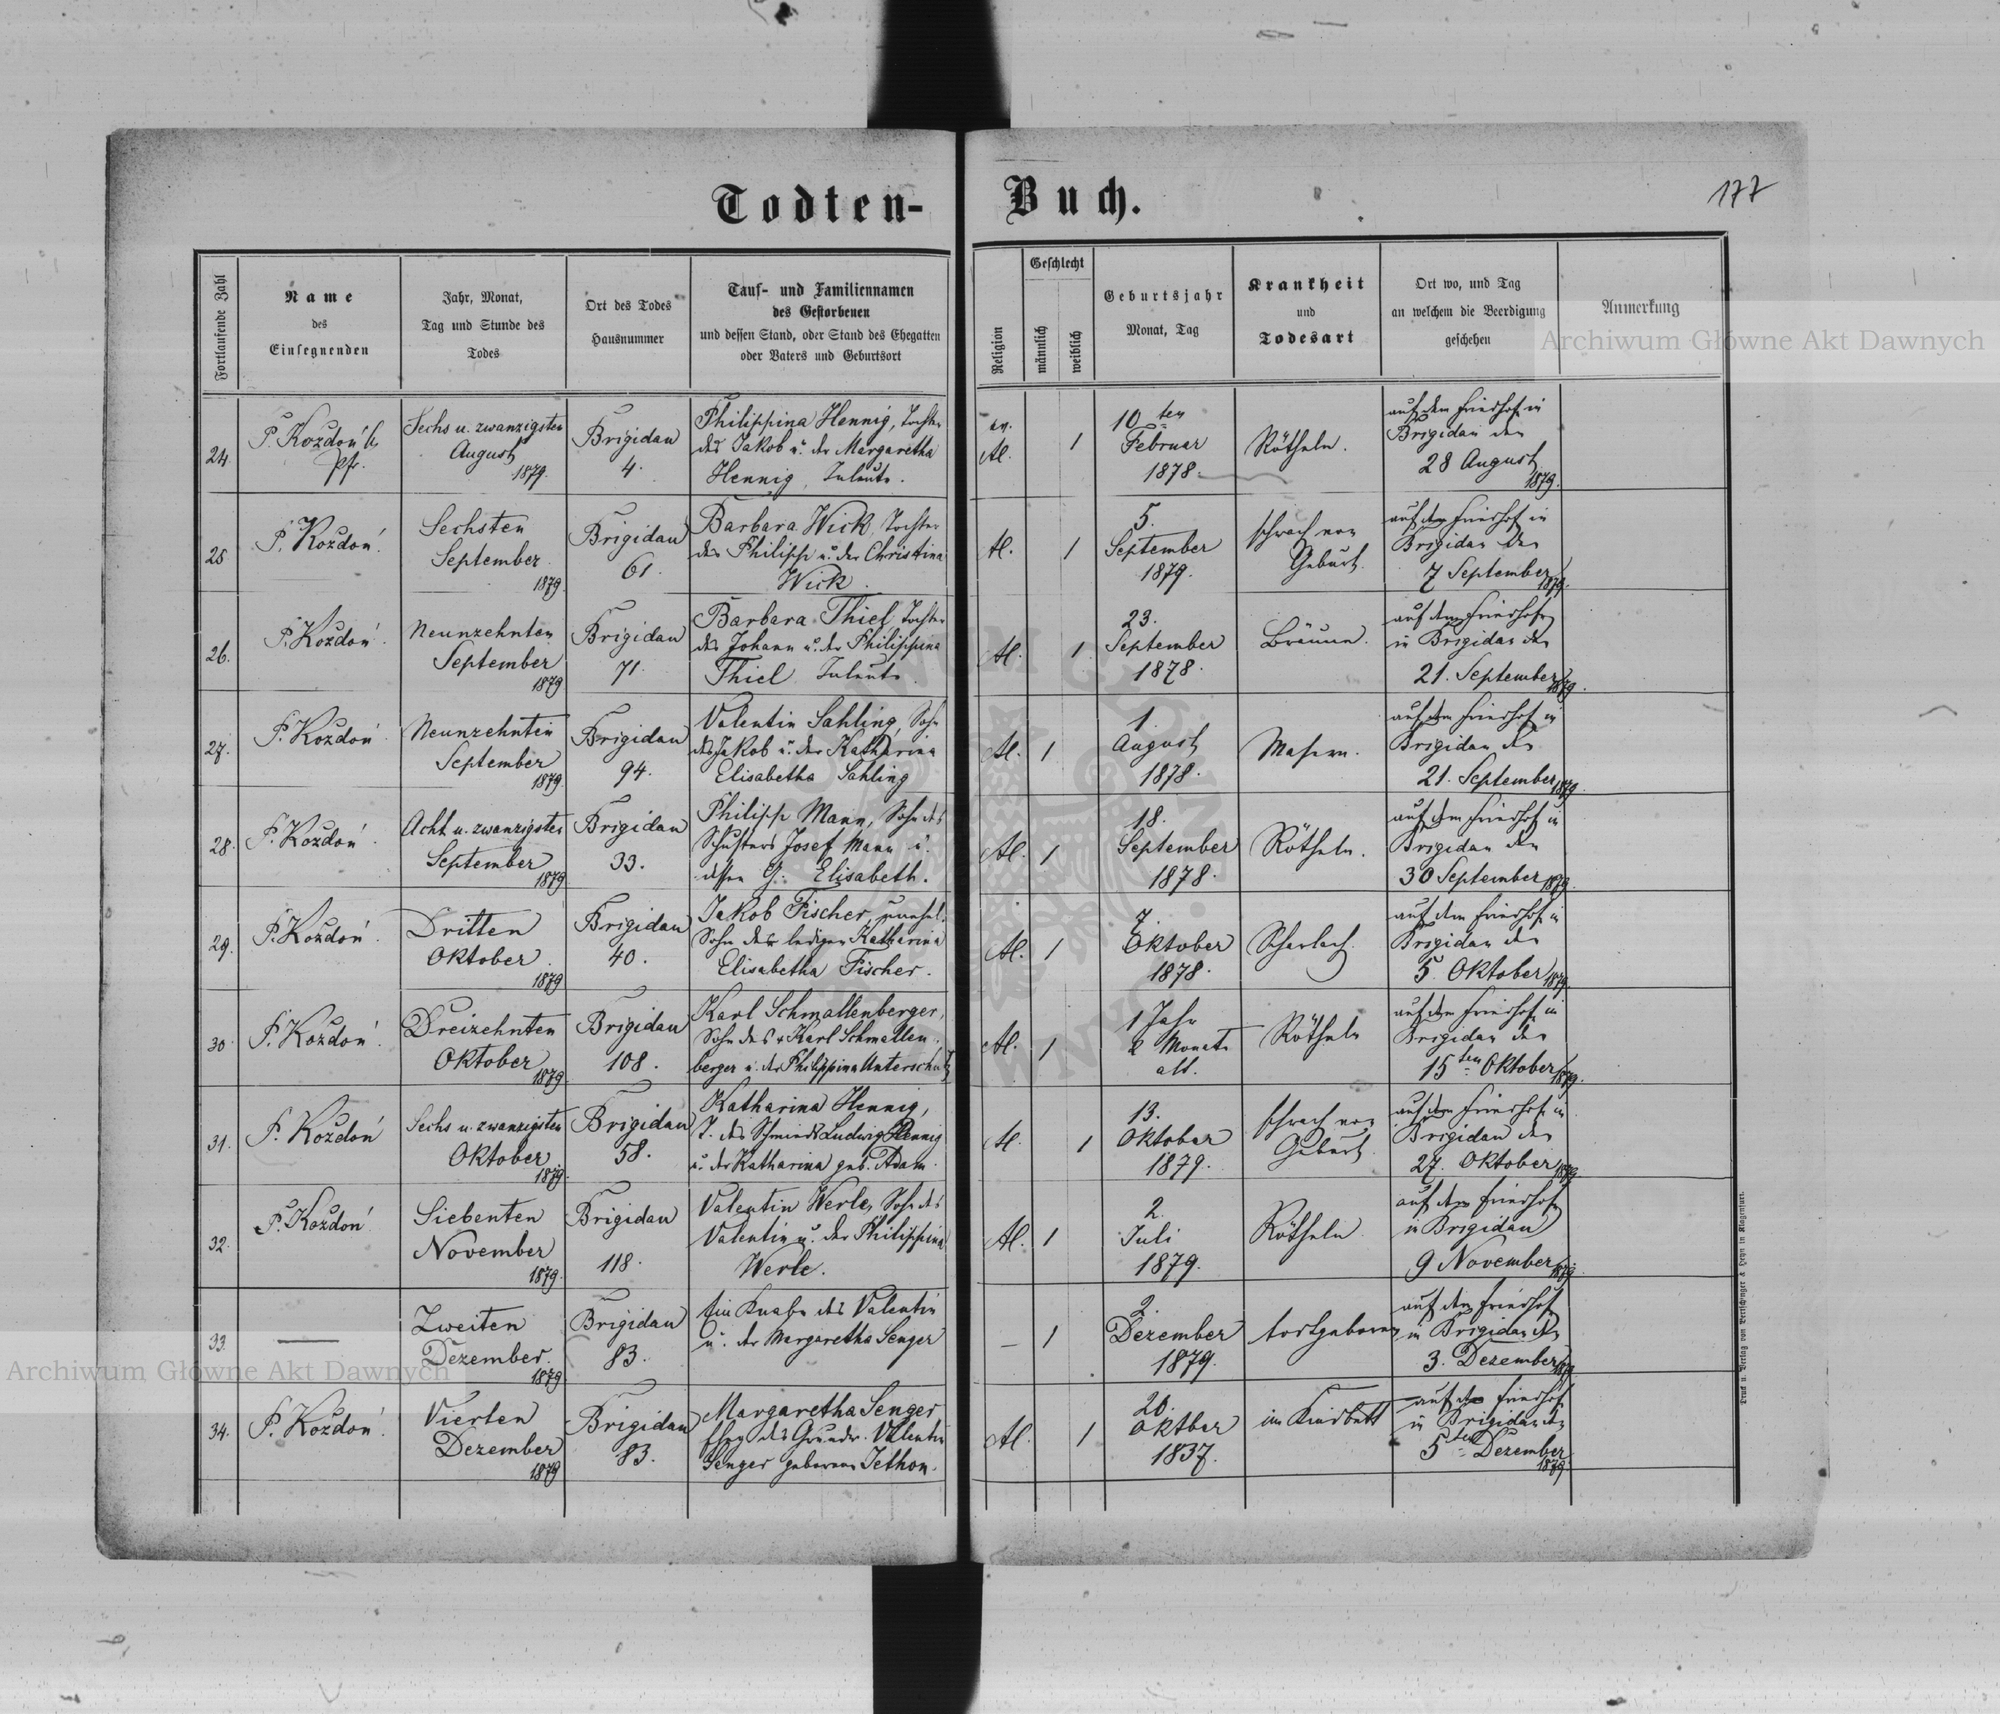 Todten-Buch.
177
Fortlaufende Zahl
Name
des
Einsegnenden
Jahr, Monat,
Tag und Stunde des
Todes
Ort des Todes
Hausnummer
Tauf- und Familiennamen
des Gestorbenen
und dessen Stand, oder Stand des Ehegatten
oder Vaters und Geburtsort
Religion
Geschlecht
männlich
weiblich
Geburtsjahr
Monat, Tag
Krankheit
und
Todesart
Ort wo, und Tag
an welchem die Beerdigung
geschehen
Anmerkung
Archiwum Główne Akt Dawnych
24.
P. Kozdoń
Pfr.
Sechs u. zwanzigsten
August
1879.
Brigidau
4.
Philippina Hennig, Tochter
des Jakob u. der Margaretha
Hennig, Inleute.
ev.
AC.
1
10ten
Februar
1878.
Rötheln.
auf dem Friedhof in
Brigidau den
28 August
1879.
25
P. Kozdoń.
Sechsten
September
1879
Brigidau
61.
Barbara Wick Tochter
des Philipp u. der Christina
Wick.
AC.
1
5.
September
1879.
schwach von
Geburt.
auf dem Friedhof in
Brigidau den
7 September
1879.
26.
P. Kozdoń.
Neunzehnten
September
1879
Brigidau
71.
Barbara Thiel, Tochter
des Johann u. der Philippina
Thiel Inleute.
AC.
1
23.
September
1878.
Bräune.
auf dem Friedhofe
in Brigidau den
21. September
1879.
27.
P. Kozdoń
Neunzehnten
September
1879.
Brigidau
94.
Valentin Sahling, Sohn
des Jakob u. der Katharina
Elisabetha Sahling
AC.
1
1.
August
1878.
Masern.
auf dem Friedhof in
Brigidau den
21. September
1879.
28.
P. Kozdoń.
Acht u. zwanzigsten
September
1879
Brigidau
33.
Philipp Mann, Sohn des
Schusters Josef Mann u.
dessen G. Elisabeth.
AC.
1
18.
September
1878.
Rötheln.
auf dem Friedhof in
Brigidau den
30 September
1879.
29.
P. Kozdoń.
Dritten
Oktober.
1879
Brigidau
40.
Jakob Fischer, unehel.
Sohn der ledigen Katharina
Elisabetha Fischer.
AC.
1
7.
Oktober
1878.
Scharlach.
auf dem Friedhof in
Brigidau den
5. Oktober
1879.
30.
P. Kozdoń.
Dreizehnten
Oktober
1879
Brigidau
108.
Karl Schmallenberger,
Sohn des + Karl Schmallen-
berger u. der Philippina Unterschütz
AC.
1
1 Jahr
2 Monate
alt.
Rötheln
auf dem Friedhof in
Brigidau den
15ten Oktober
1879.
31.
P. Kozdoń
Sechs u. zwanzigsten
Oktober
1879.
Brigidau
58.
Katharina Hennig,
T. des Schmieds Ludwig Hennig
u. der Katharina geb. Adam.
AC.
1
13.
Oktober
1879.
schwach von
Geburt.
auf dem Friedhof in
Brigidau den
27. Oktober
1879
32.
P. Kozdoń
Siebenten
November
1879.
Brigidau
118.
Valentin Werle, Sohn des
Valentin u. der Philippina
Werle.
AC.
1
2.
Juli
1879.
Rötheln.
auf dem Friedhofe
in Brigidau
9 November
1879.
33.
—
Zweiten
Dezember.
1879
Brigidau
83.
Ein Knabe des Valentin
u. der Margaretha Senger
—
1
2.
Dezember
1879.
todtgeboren
auf dem Friedhofe
in Brigidau den
3. Dezember
1879
34.
P. Kozdoń.
Vierten
Dezember
1879
Brigidau
83.
Margaretha Senger
Eheg. des Grundw. Valentin
Senger geborene Jethon.
AC.
1
26.
Oktber
1837.
im Kindbett
auf dem Friedhof
in Brigidau den
5ten Dezember
1879.
Druck u. Verlag von Bertschinger & Heyn in Klagenfurt.
Archiwum Główne Akt Dawnych